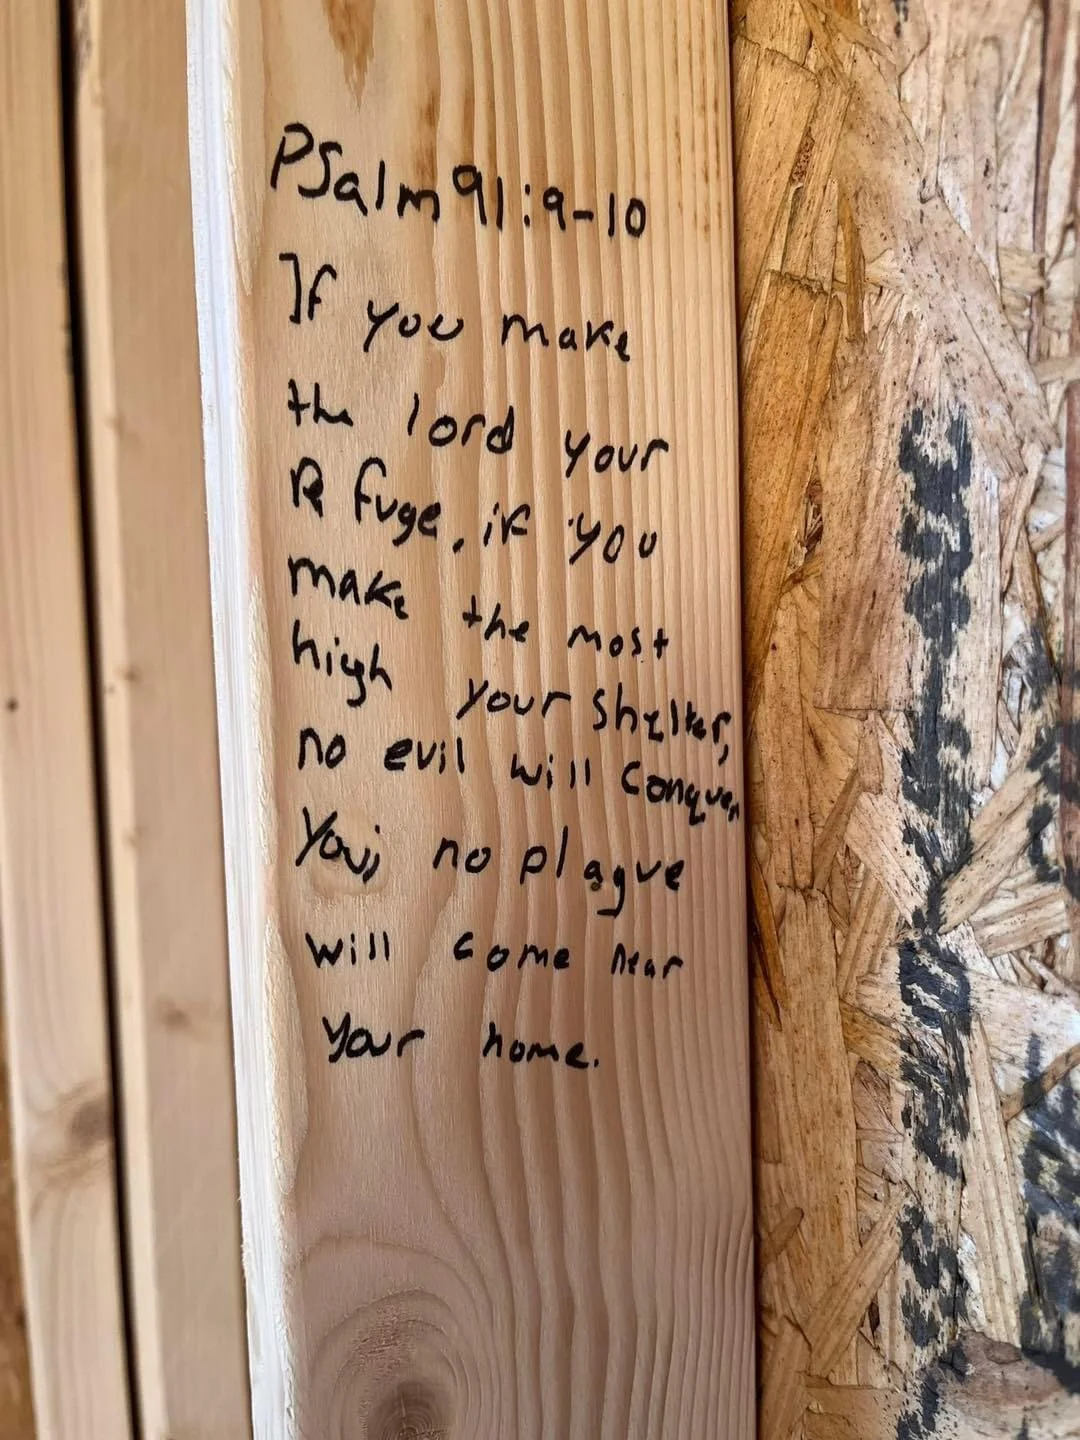 Psalm 91:9-10
If you make
the lord your
Refuge, if you
make the most
high your shelter,
no evil will conquer
You; no plague
will come near
your home.